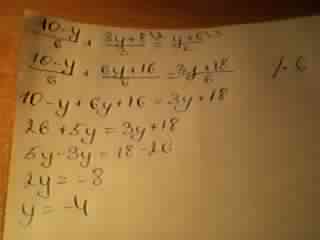 10-y/6 + 3y+8/3 = y+6/2
10-y/6 + 6y+16/6 = 3y+18/6 /·6
10-y+6y+16=3y+18
26+5y=3y+18
5y-3y=18-26
2y=-8
y=-4